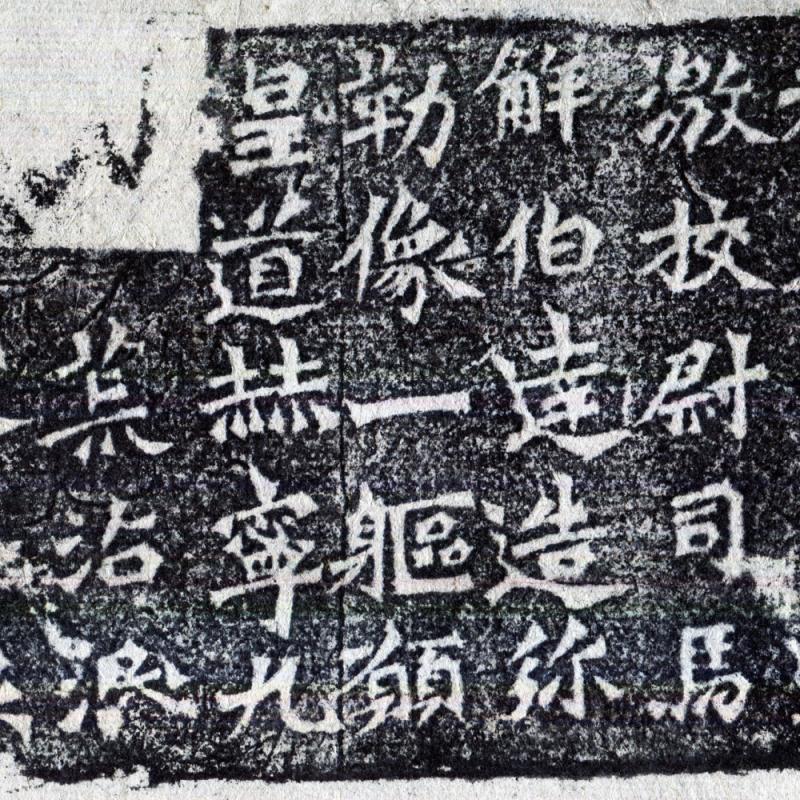 激校尉司馬
解伯達造弥
勒像一軀願
皇道赫寧九
荒沾泯